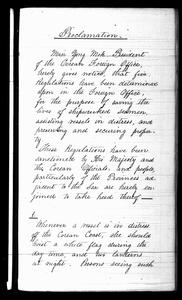 Proclamation.
Min Yong Mok President
of the Corean Foreign Office,
hereby gives notice, that five
Regulations have been determined
upon in the Foreign Office,
for the purpose of saving the
lives of shipwrecked seamen,
assisting vessels in distress, and
preserving and securing proper-
ty.
These Regulations have been
sanctioned by His Majesty and
the Corean Officials and people
particularly of the Provinces ad-
jacent to the Sea are hereby en-
joined to take heed thereby —
1
Whenever a vessel is in distress
off the Corean Coast, she should
hoist a white flag during the
day time, and two lanterns
at night. Persons seeing such